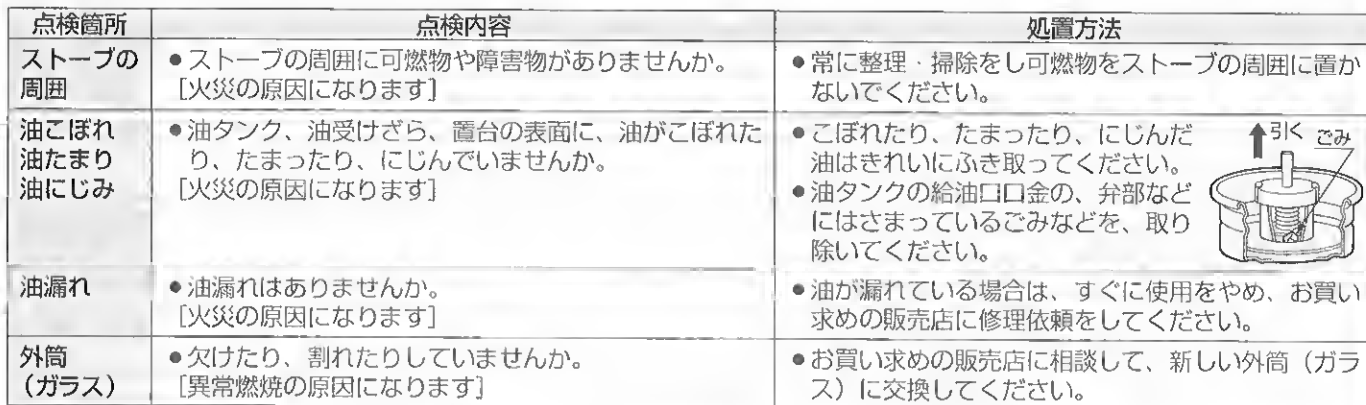 点検箇所
点検内容
処置方法
ストーブの
周囲
●ストーブの周囲に可燃物や障害物がありませんか。
[火災の原因になります]
●常に整理・掃除をし可燃物をストーブの周囲に置か
ないでください。
油こぼれ
油たまり
油にじみ
●油タンク、油受けざら、置台の表面に、油がこぼれた
り、たまったり、にじんでいませんか。
[火災の原因になります]
●こぼれたり、たまったり、にじんだ
油はきれいにふき取ってください。
●油タンクの給油口口金の、弁部など
にはさまっているごみなどを、取り
除いてください。
引く
ごみ
油漏れ
●油漏れはありませんか。
[火災の原因になります]
●油が漏れている場合は、すぐに使用をやめ、お買い
求めの販売店に修理依頼をしてください。
外筒
(ガラス)
●欠けたり、割れたりしていませんか。
[異常燃焼の原因になります]
●お買い求めの販売店に相談して、新しい外筒(ガラ
ス)に交換してください。